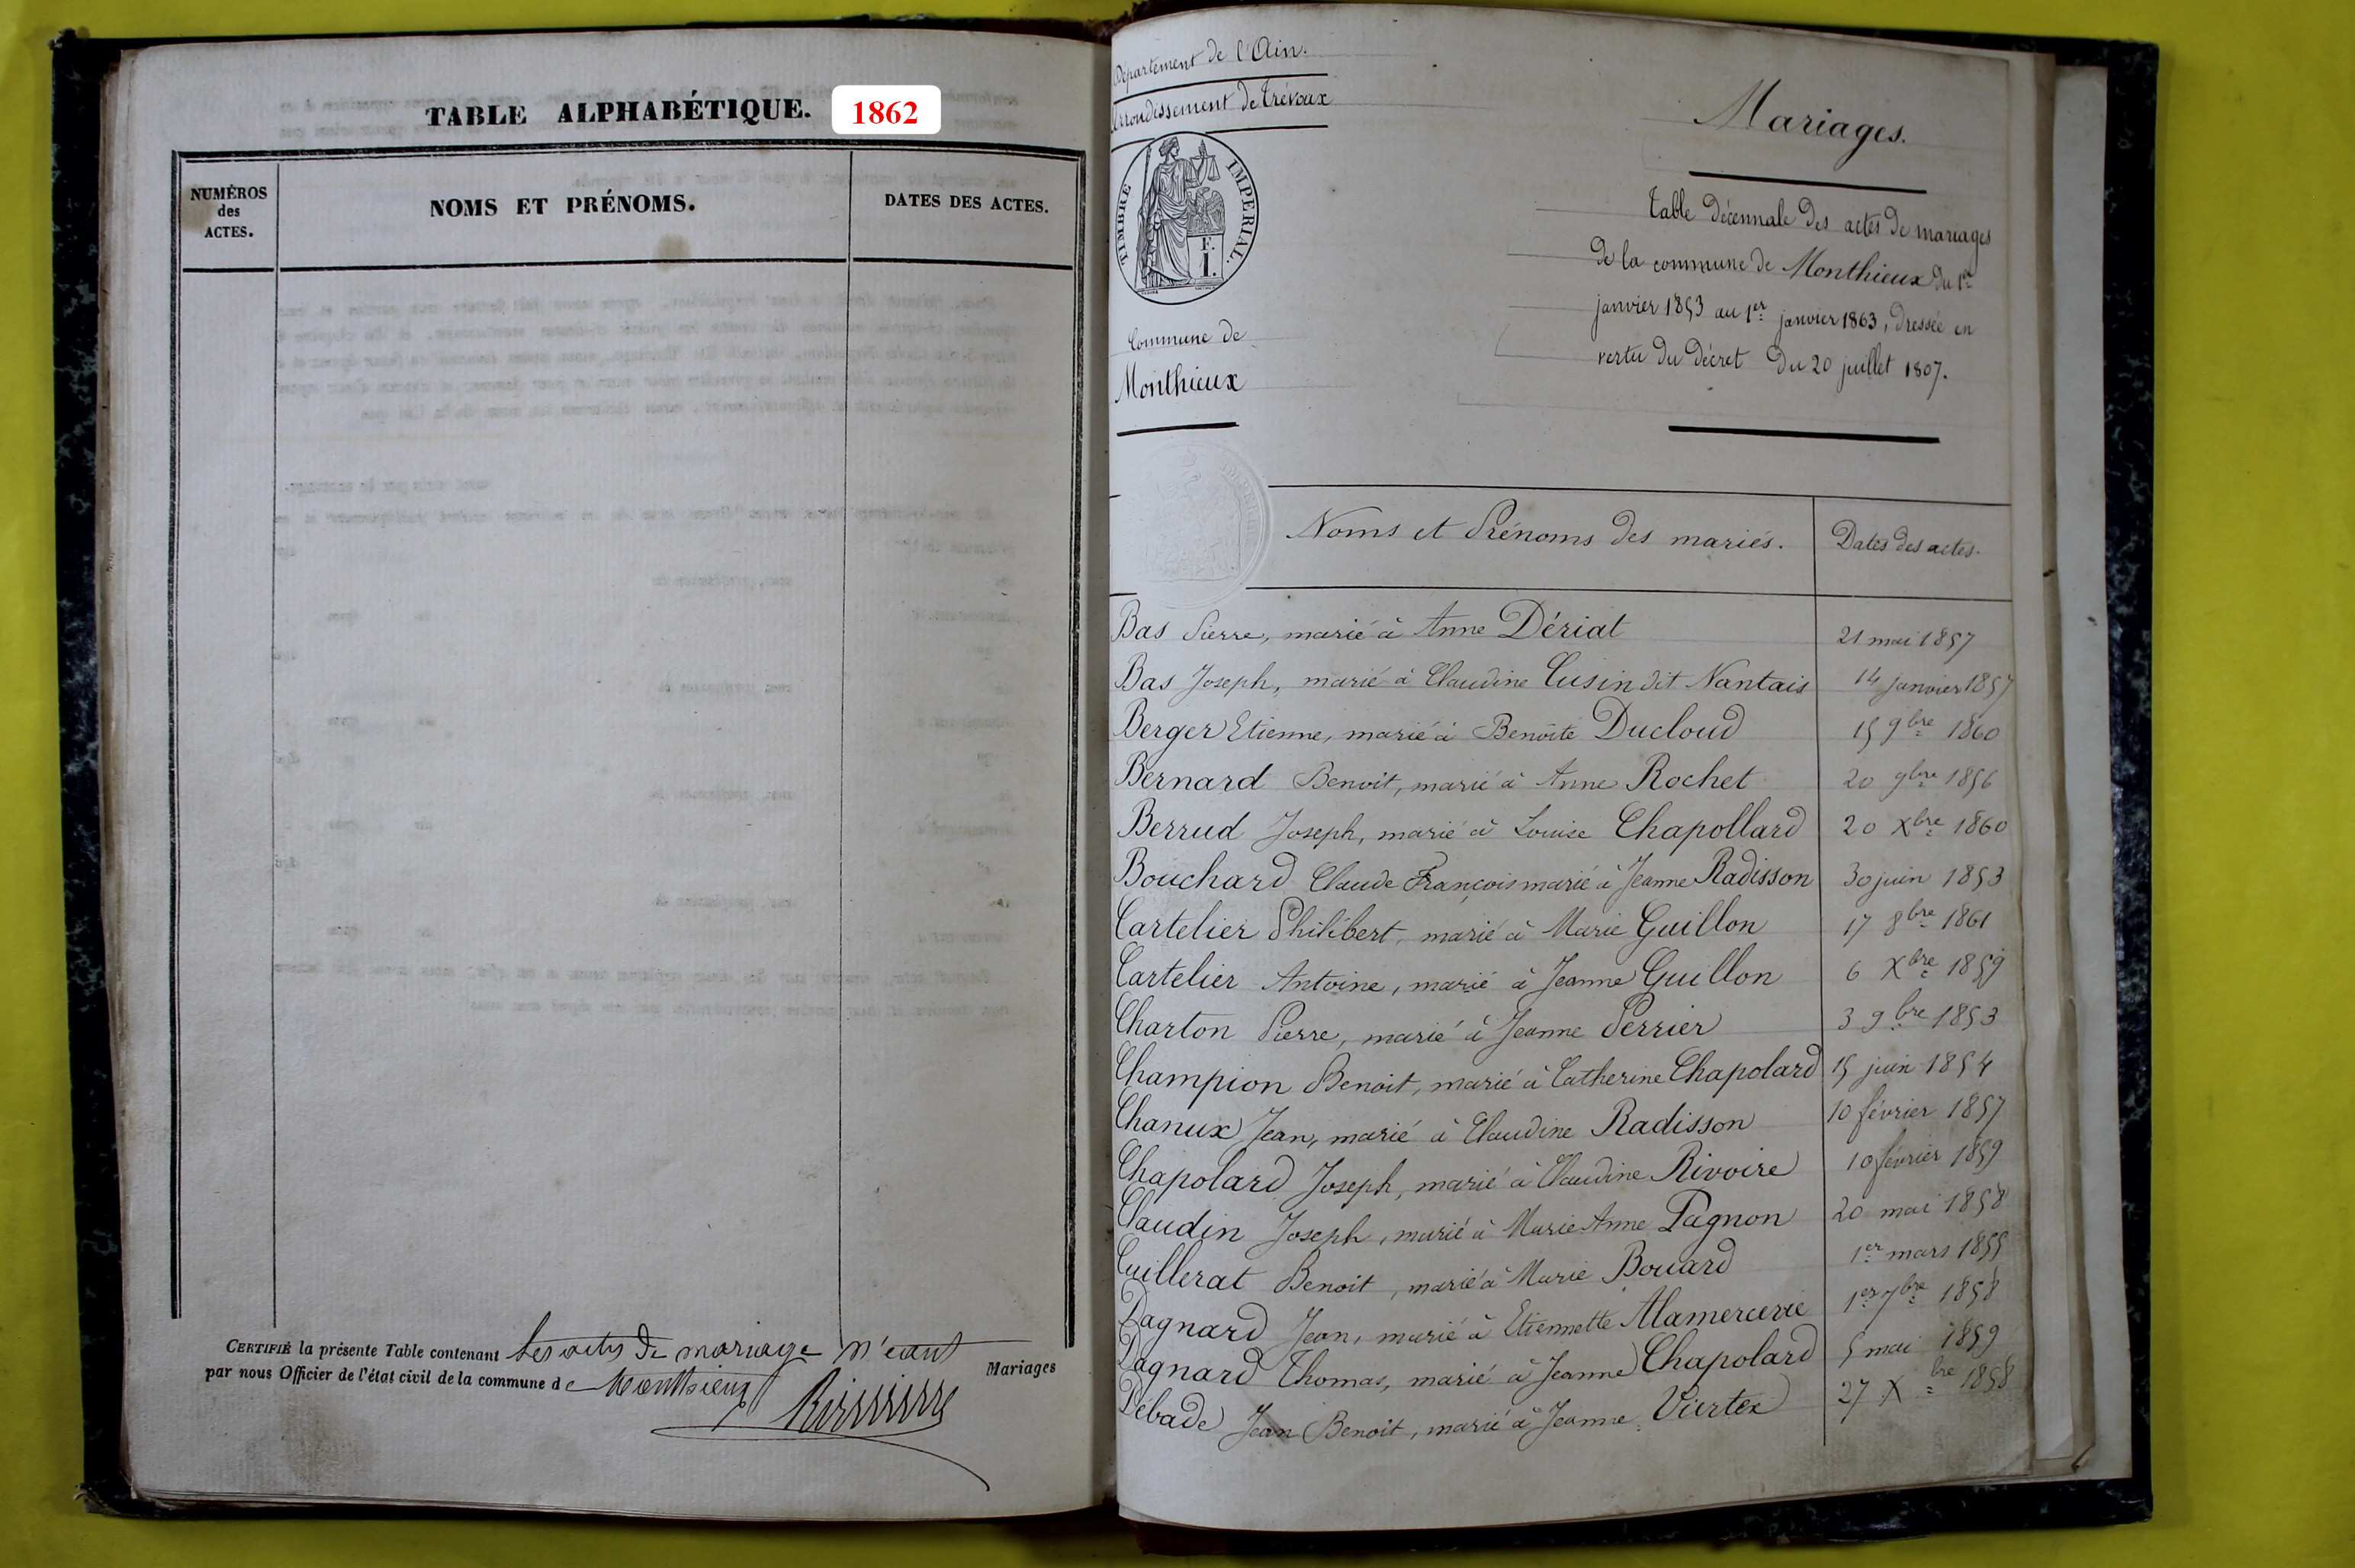 TABLE ALPHABÉTIQUE. 1862
NUMÉROS
des
ACTES.
NOMS ET PRÉNOMS.
DATES DES ACTES.
CERTIFIÉ la présente Table contenant les actes de mariage
par nous Officier de l'état civil de la commune de Monthieux
Mariages
Département de l'Ain.
Arrondissement de Trévoux
TIMBRE IMPERIAL.
F.
I.
Commune de
Monthieux
Mariages.
Table décennale des actes de mariages
de la commune de Monthieux du 1er
janvier 1853 au 1er janvier 1863, dressée en
vertu du décret du 20 juillet 1807.
Noms et Prénoms des mariés. Dates des actes.
Bas Pierre, marié à Anne Dériat 21 mai 1857
Bas Joseph, marié à Claudine Cusin dit Nantais 14 janvier 1857
Berger Etienne, marié à Benoîte Ducloud 15 9bre 1860
Bernard Benoit, marié à Anne Rochet 20 9bre 1856
Berrud Joseph, marié à Louise Chapollard 20 Xbre 1860
Bouchard Claude François marié à Jeanne Radisson 30 juin 1853
Cartelier Philibert, marié à Marie Guillon 17 8bre 1861
Cartelier Antoine, marié à Jeanne Guillon 6 Xbre 1859
Charton Pierre, marié à Jeanne Perrier 3 9bre 1853
Champion Benoit, marié à Catherine Chapolard 15 juin 1854
Chanux Jean, marié à Claudine Radisson 10 février 1857
Chapolard Joseph, marié à Claudine Rivoire 10 février 1859
Claudin Joseph, marié à Marie Anne Pagnon 20 mai 1858
Cuillerat Benoit, marié à Marie Bouard 1er mars 1855
Dagnard Jean, marié à Etiennette Alamercerie 1er 7bre 1858
Dagnard Thomas, marié à Jeanne Chapolard 5 mai 1859
Debade Jean Benoit, marié à Jeanne 27 Xbre 1858